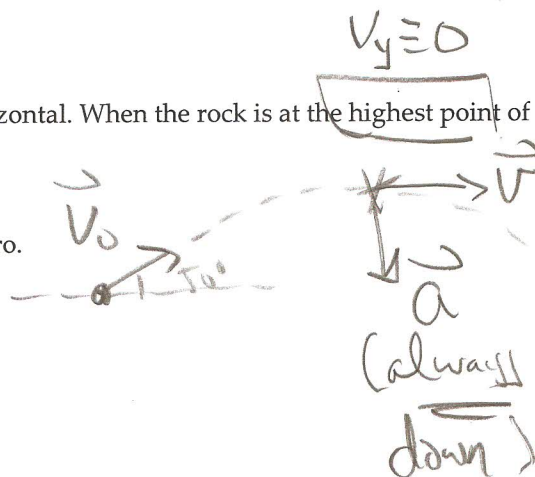 Vy≡0
zontal. When the rock is at the highest point of
V
V₀
ro.
50°
a
(always
down)